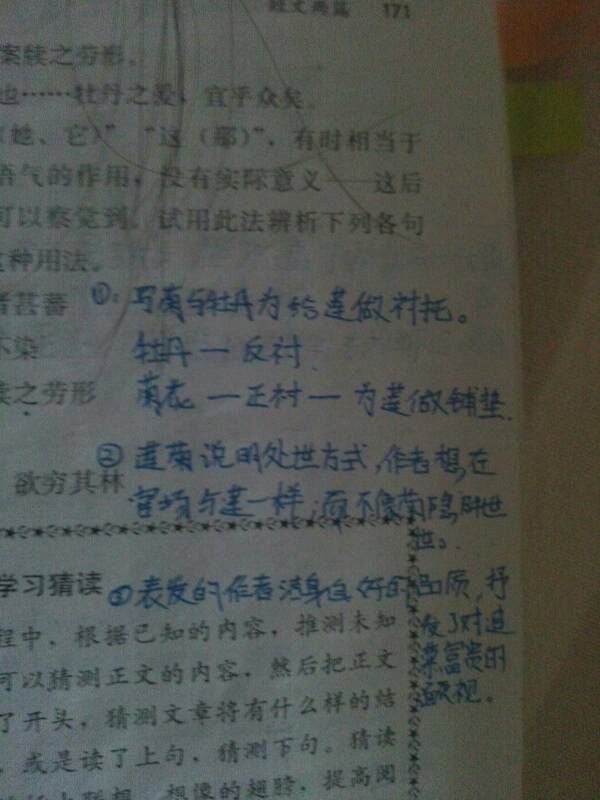 短文两篇 171
案牍之劳形。
也……牡丹之爱，宜乎众矣。
（她、它）”“这（那）”，有时相当于
语气的作用，没有实际意义——这后
可以察觉到。试用此法辨析下列各句
这种用法。
者甚蕃
①：写菊与牡丹为给莲做衬托。
不染
牡丹—反衬
牍之劳形
菊花—正衬—为莲做铺垫.
②莲菊说明处世方式,作者想在
欲穷其林
官场与莲一样,而不像菊隐居世
学习猜读
③表发的作者洁身自好的品质,抒
发了对追
慕富贵的
鄙视.
程中，根据已知的内容，推测未知
可以猜测正文的内容，然后把正文
了开头，猜测文章将有什么样的结
，或是读了上句，猜测下句。猜读
想像的翅膀，提高阅